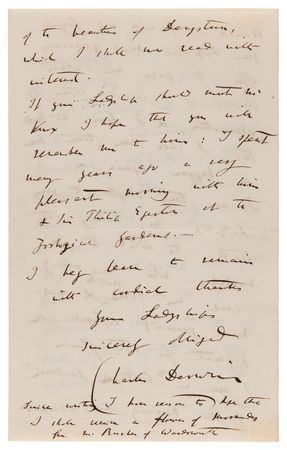 of the beauties of Dangstein,
which I shall now read with
interest.
If your Ladyship should meet Mr.
Knox I hope that you will
remember me to him: I spent
many years ago a very
pleasant morning with him
& Sir Philip Egerton at the
Zoological Gardens.—
I beg leave to remain
with cordial thanks
Your Ladyship's
sincerely obliged
Charles Darwin
Since writing I have reason to hope that
I shall receive a flower of
for Mr. of Wandsworth